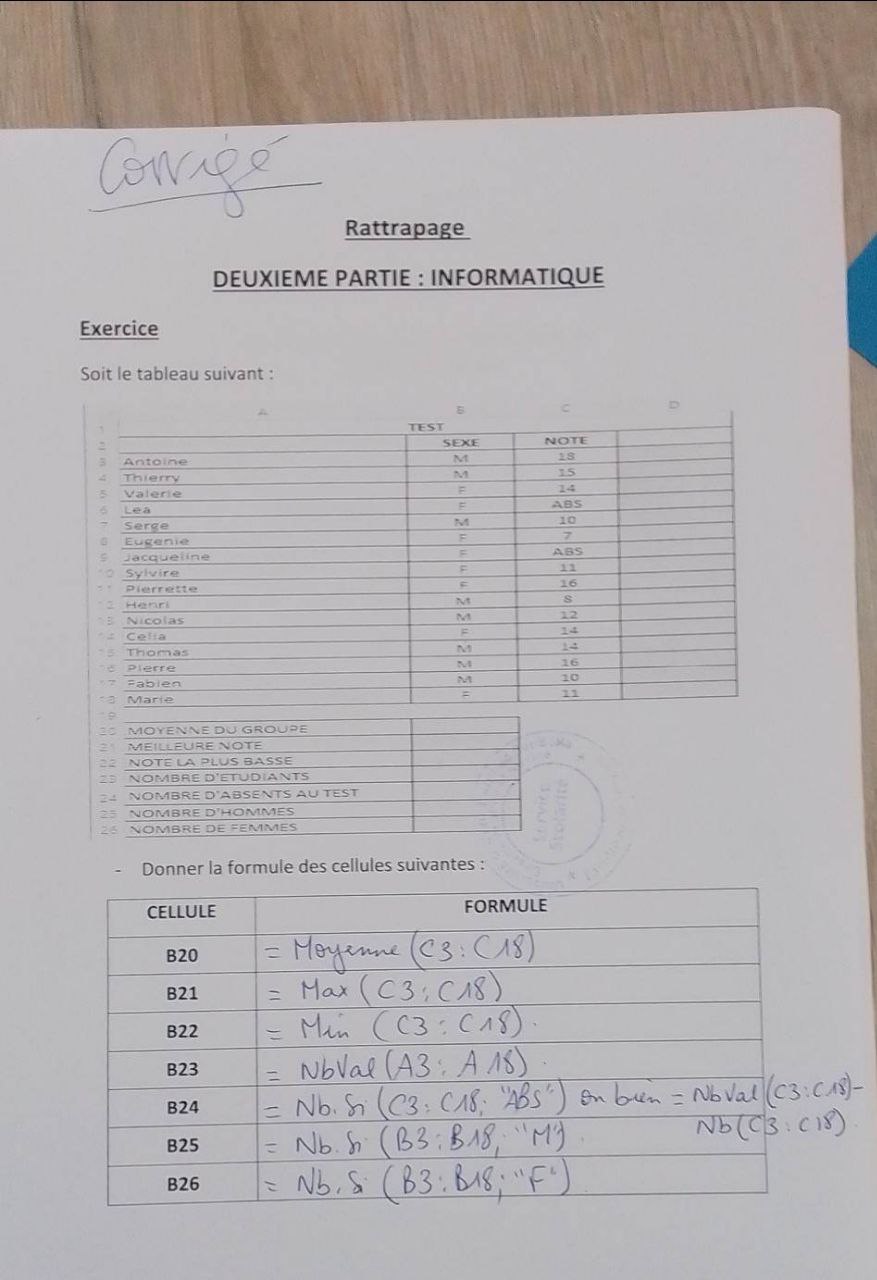 Corrigé
Rattrapage
DEUXIEME PARTIE : INFORMATIQUE
Exercice
Soit le tableau suivant :
A B C D
1 TEST
2 SEXE NOTE
3 Antoine M 18
4 Thierry M 15
5 Valerie F 14
6 Lea F ABS
7 Serge M 10
8 Eugenie F 7
9 Jacqueline F ABS
10 Sylvire F 11
11 Pierrette F 16
12 Henri M 8
13 Nicolas M 12
14 Celia F 14
15 Thomas M 14
16 Pierre M 16
17 Fabien M 10
18 Marie F 11
19
20 MOYENNE DU GROUPE
21 MEILLEURE NOTE
22 NOTE LA PLUS BASSE
23 NOMBRE D'ETUDIANTS
24 NOMBRE D'ABSENTS AU TEST
25 NOMBRE D'HOMMES
26 NOMBRE DE FEMMES
Service
Scolarité
- Donner la formule des cellules suivantes :
CELLULE FORMULE
B20 = Moyenne (C3:C18)
B21 = Max (C3:C18)
B22 = Min (C3:C18).
B23 = NbVal (A3:A18).
B24 = Nb.Si (C3:C18; "ABS") ou bien = NbVal (C3:C18)-
Nb(C3:C18).
B25 = Nb.Si (B3:B18; "M").
B26 = Nb.Si (B3:B18; "F")